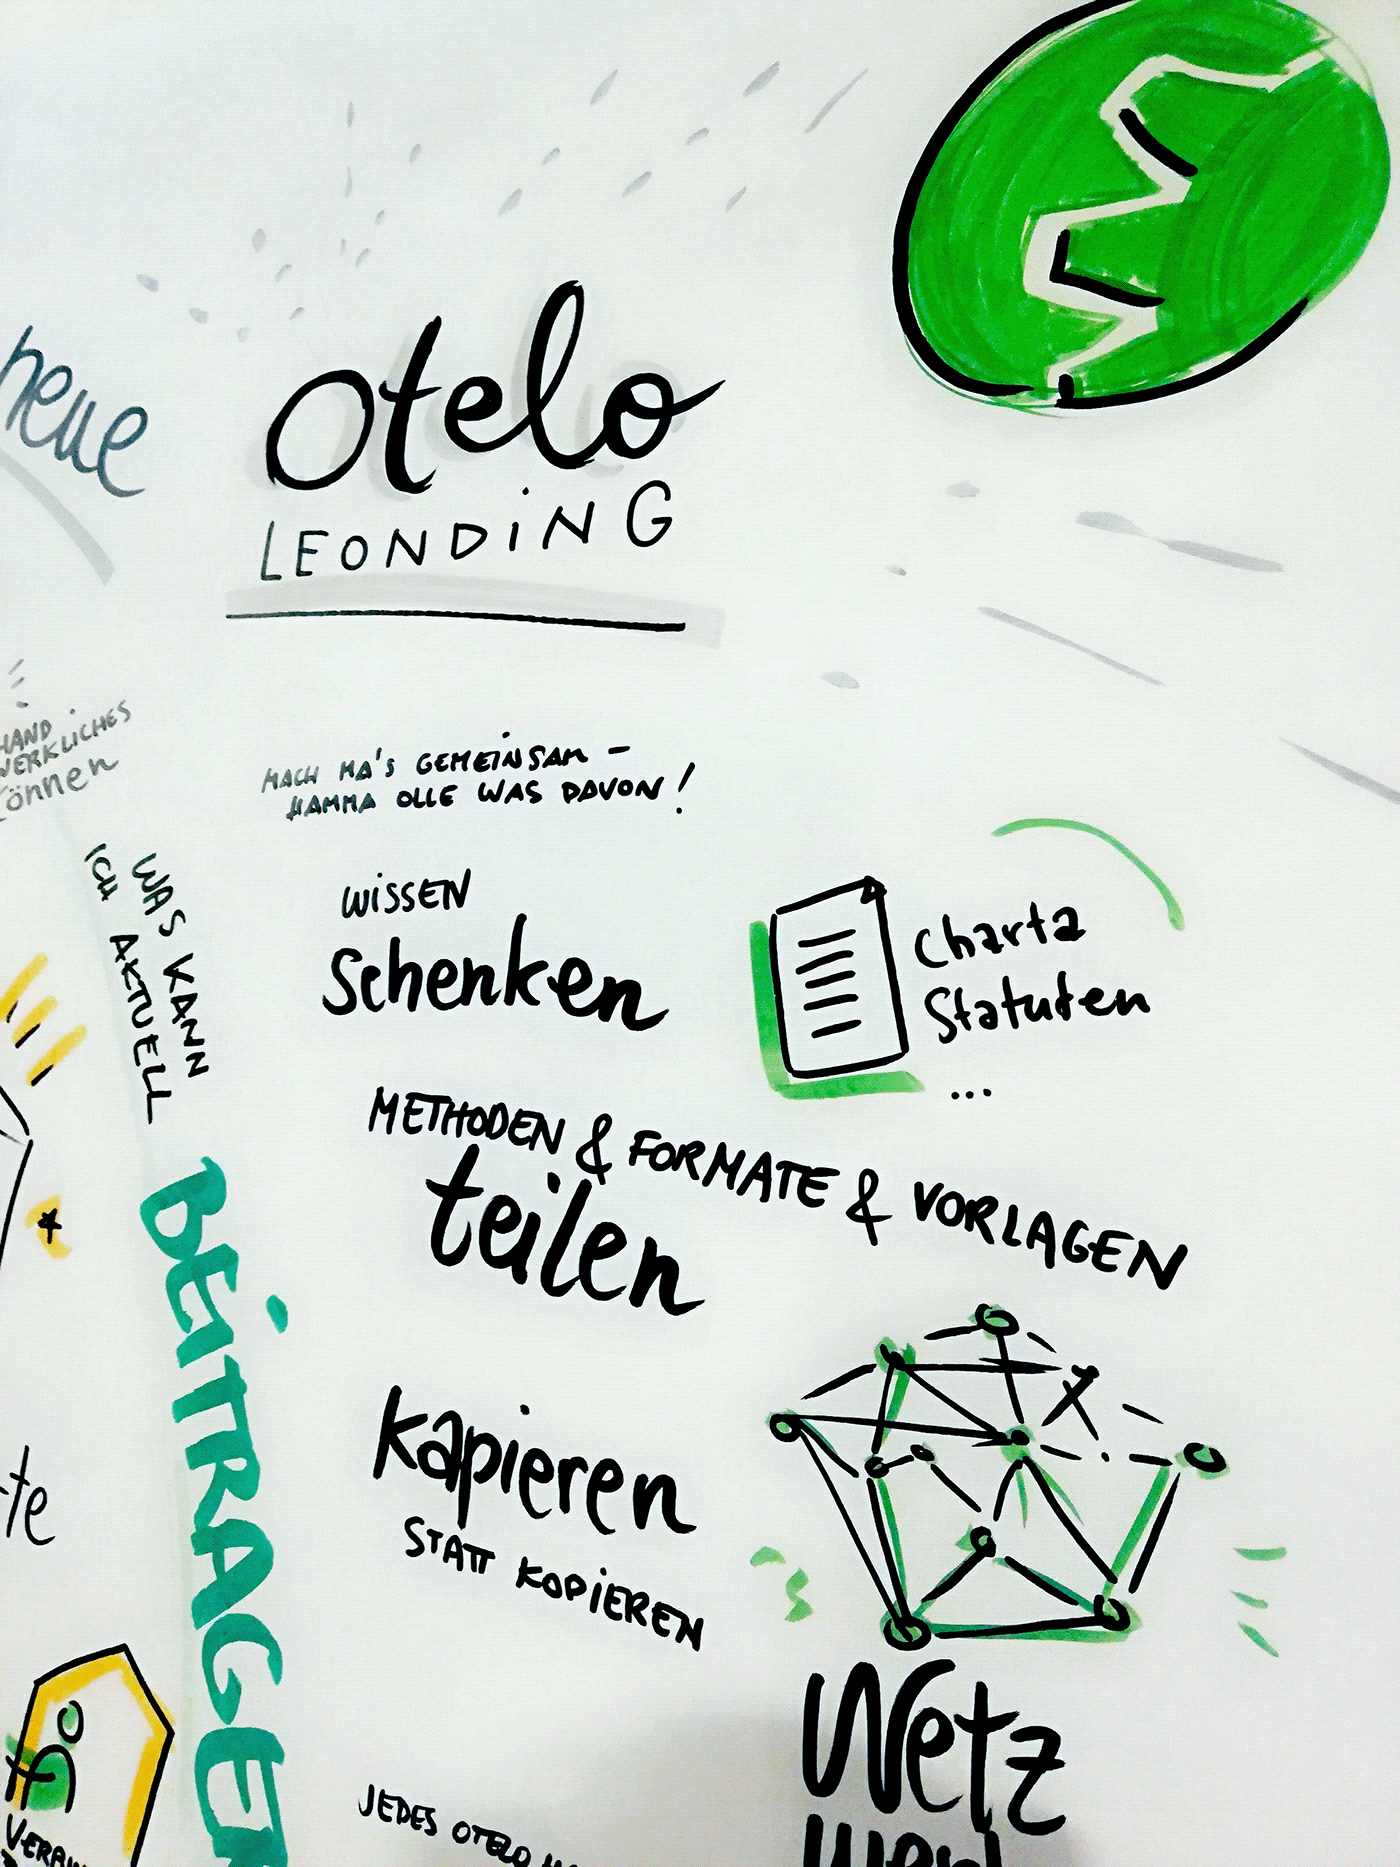 neue
otelo
LEONDiNG
HAND
WERKLICHES
können
MACH MA'S GEMEiNSAM –
HAMMA OLLE WAS DAVON!
WAS KANN
ICH AKTUELL
BEiTRAGEN
WiSSEN
Schenken
Charta
Statuten
...
METHODEN & FORMATE & VORLAGEN
teilen
kapieren
STATT KOPiEREN
te
Netz
JEDES OTELO